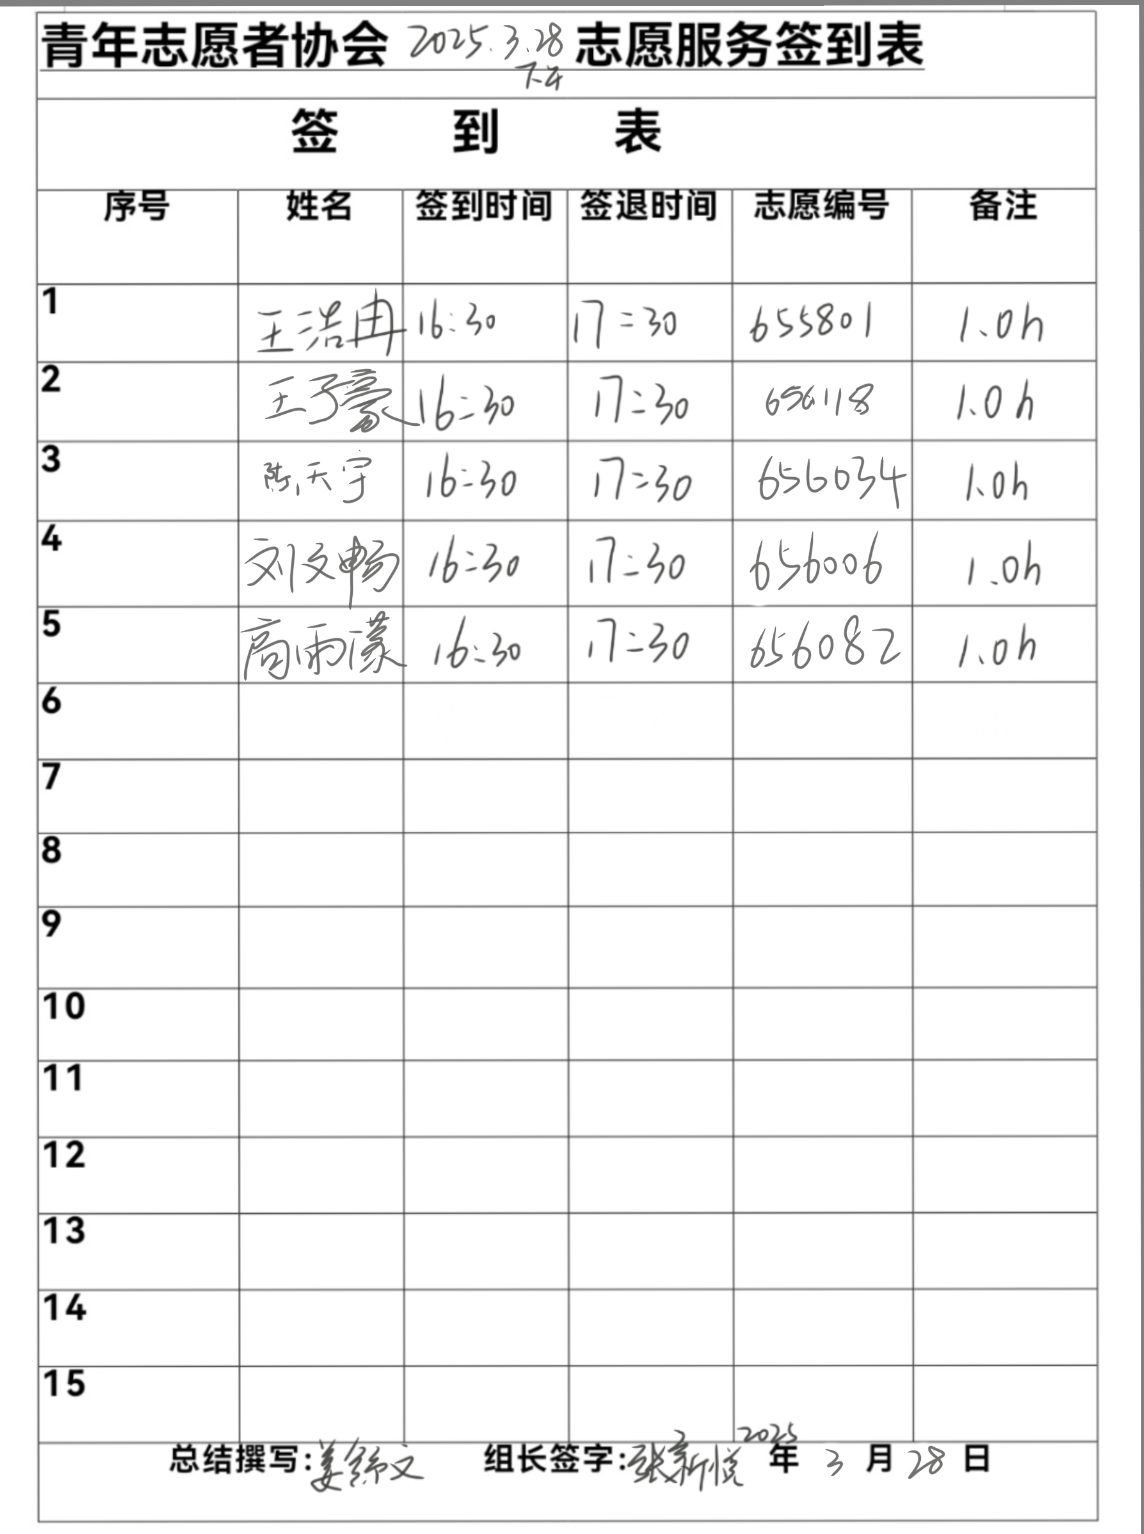 青年志愿者协会 2025.3.28 志愿服务签到表
下午
签 到 表
序号 姓名 签到时间 签退时间 志愿编号 备注
1 王浩冉 16:30 17:30 655801 1.0h
2 王子豪 16:30 17:30 656118 1.0h
3 陈天宇 16:30 17:30 656034 1.0h
4 刘文畅 16:30 17:30 656006 1.0h
5 高雨濛 16:30 17:30 656082 1.0h
6
7
8
9
10
11
12
13
14
15
总结撰写:姜 文 组长签字:张新悦 2025年 3 月 28 日